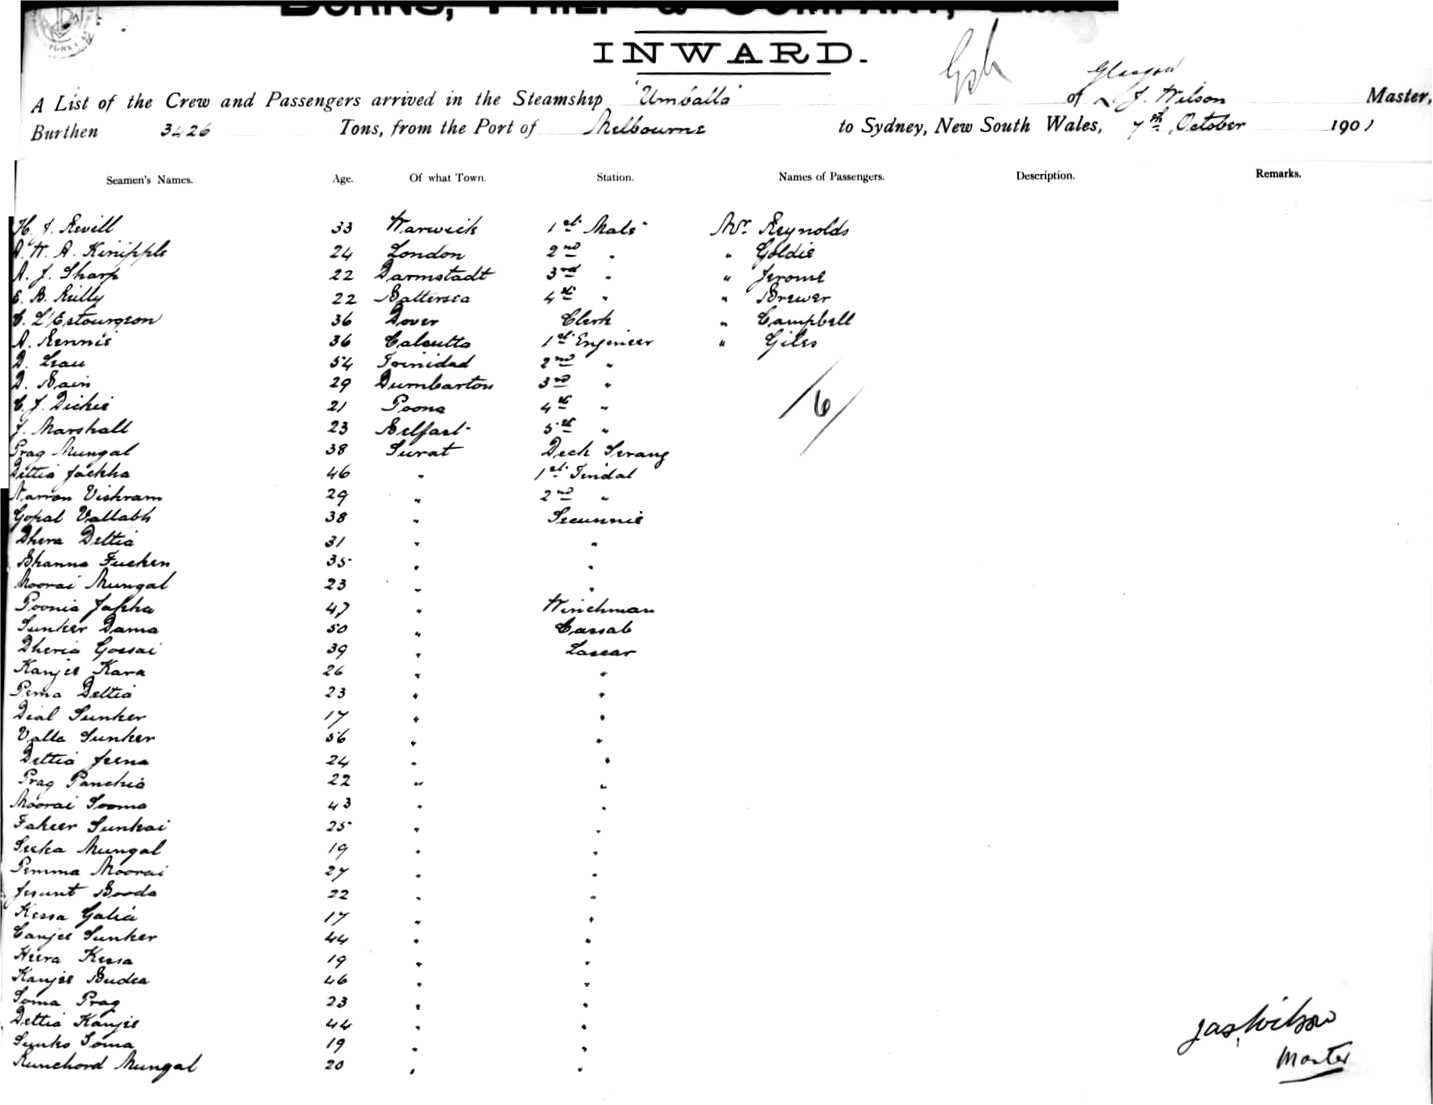 BURNS, PHILP & COMPANY,
INWARD.
A List of the Crew and Passengers arrived in the Steamship "Umballa" of Glasgow J. Wilson Master,
Burthen 3426 Tons, from the Port of Melbourne to Sydney, New South Wales, 7th October 1901
Seamen's Names. Age. Of what Town. Station. Names of Passengers. Description. Remarks.
H. J. Revill 33 Warwick 1st Mate Mr. Reynolds
A. W. A. Kinipple 24 London 2nd " " Goldie
A. J. Sharp 22 Darmstadt 3rd " " Jerome
E. B. Reilly 22 Battersea 4th " " Brewer
C. L'Estourgeon 36 Dover Clerk " Campbell
A. Rennie 36 Calcutta 1st Engineer " Giles
D. 54 Trinidad 2nd "
D. Bain 29 Dumbarton 3rd "
C. J. Dickie 21 Poona 4th " 6
J. Marshall 23 Belfast 5th "
Prag Mungal 38 Surat Deck Serang
Dettia Jackha 46 " 1st Tindal
Narron Vishram 29 " 2nd "
Gopal Vallabh 38 " Secunnie
Dhera Dettia 31 " "
Bhanna Fucken 35 " "
Moorai Mungal 23 " "
Poonia Japha 47 " Winchman
Sunker Dama 50 " Cassab
Dheria Gossai 39 " Lascar
Kanjee Kara 26 " "
Pema Dettia 23 " "
Dial Sunker 17 " "
Valla Sunker 56 " "
Dettia Jeena 24 " "
Prag Panchia 22 " "
Moorai Sooma 43 " "
Fakeer Sunkai 25 " "
Seeka Mungal 19 " "
Pemma Moorai 27 " "
Jesunt Booda 22 " "
Kessa Galia 17 " "
Canjee Sunker 44 " "
Heera Kessa 19 " "
Kanjee Budea 46 " "
Soma Prag 23 " "
Dettia Kanjee 44 " "
Sunko Soma 19 " "
Runchord Mungal 20 " "
Jas Wilson
Master